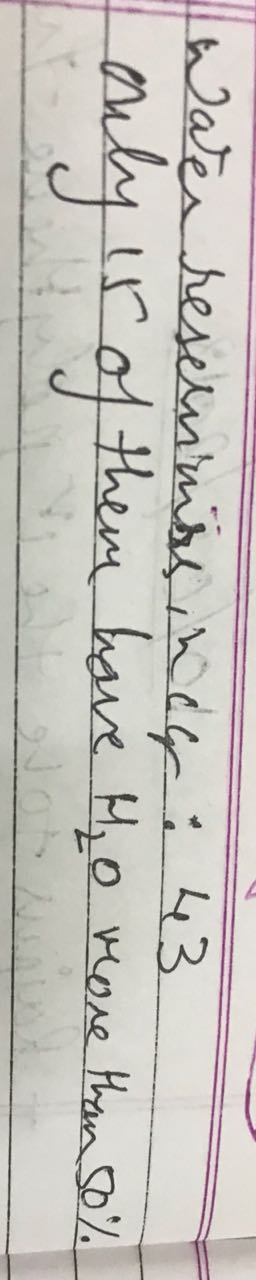 Water reservoirs in cg : 43
only 15 of them have H₂O more than 50%.